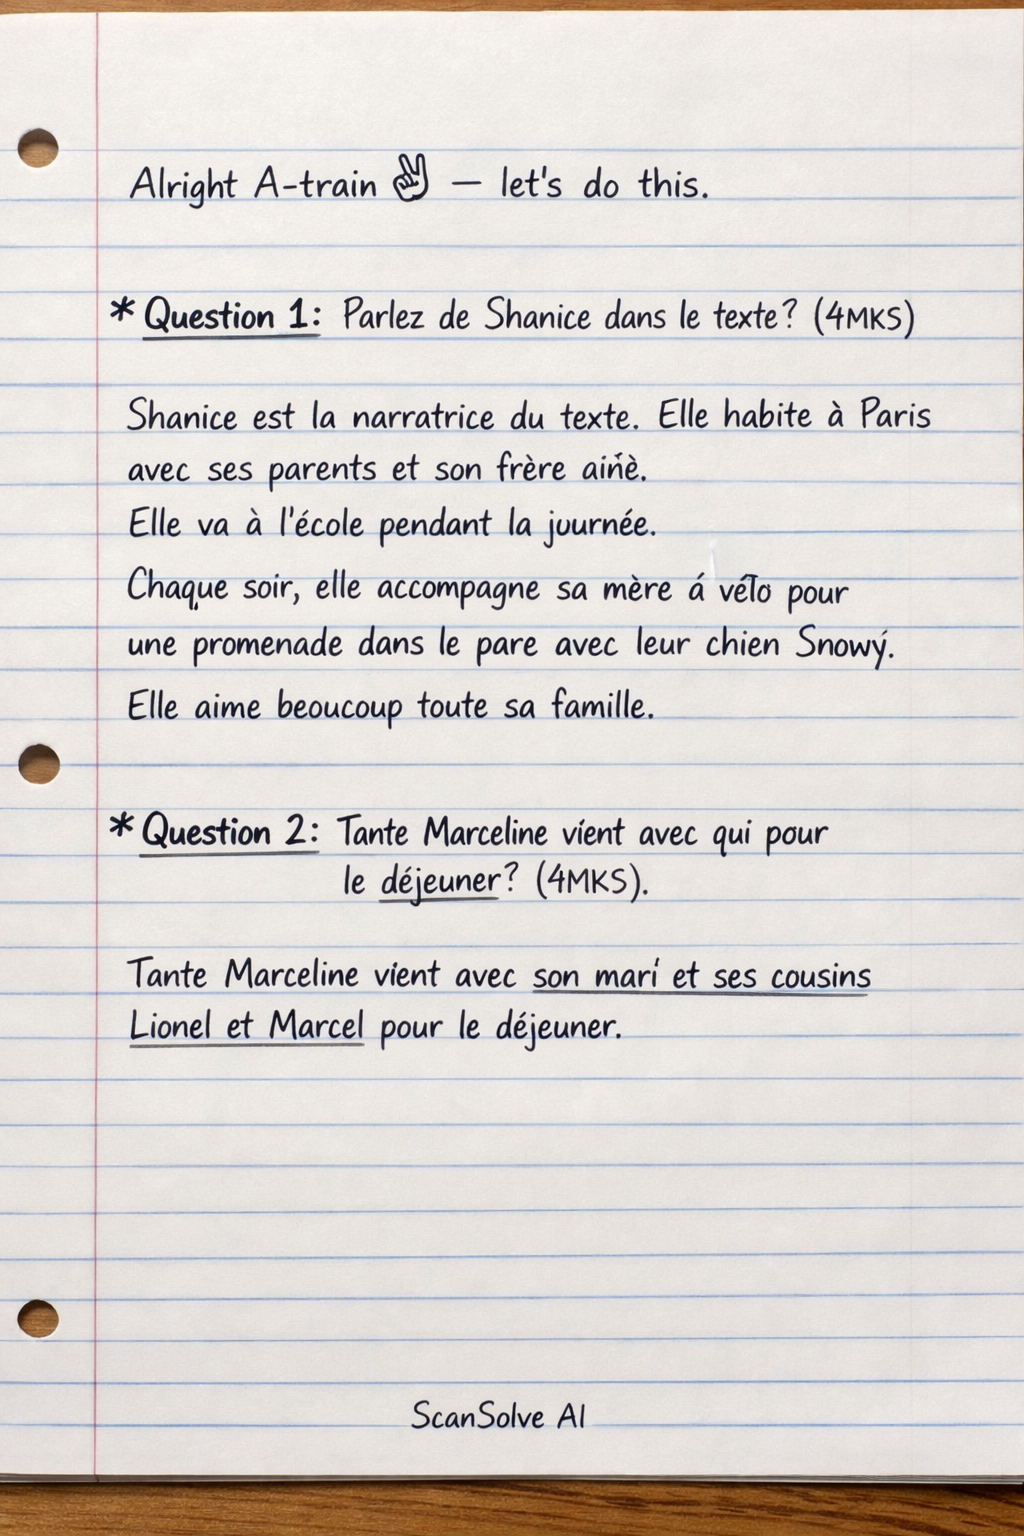 Alright A-train ✌ — let's do this.
* Question 1: Parlez de Shanice dans le texte? (4MKS)
Shanice est la narratrice du texte. Elle habite à Paris
avec ses parents et son frère aińè.
Elle va à l'école pendant la journée.
Chaque soir, elle accompagne sa mère á vélo pour
une promenade dans le pare avec leur chien Snowý.
Elle aime beoucoup toute sa famille.
* Question 2: Tante Marceline vient avec qui pour
le déjeuner? (4MKS).
Tante Marceline vient avec son marí et ses cousins
Lionel et Marcel pour le déjeuner.
ScanSolve AI